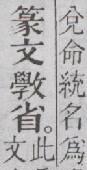 兌命統名爲
篆文斆省。此
文